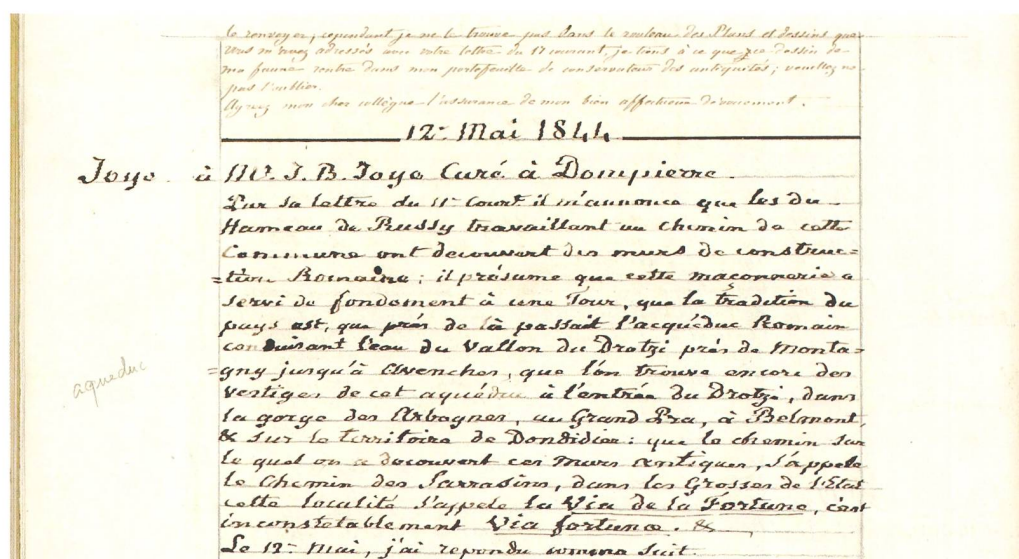 le renvoyer, cependant je ne le trouve pas dans le rouleau des Plans et dessins que
vous m'avez adressés avec votre lettre du 17 courant, je tiens à ce que ce dessin de
ma faune rentre dans mon portefeuille de conservateur des antiquités; veuillez ne
pas l'oublier.
Agréez mon cher collègue l'assurance de mon bien affectueux dévouement.
12e Mai 1844
Joye à Mr. J. B. Joye Curé à Dompierre.
Par sa lettre du 11e Court. il m'annonce que les du
Hameau de Russy travaillant au chemin de cette
Commune ont decouvert des murs de construc=
=tion Romaine; il présume que cette maconnerie a
servi de fondement à une Tour, que la tradition du
pays est, que près de là passait l'acquéduc Romain
conduisant l'eau du Vallon du Drotzi près de Monta=
=gny jusqu'à Avenches, que l'on trouve encore des
aqueduc
vestiges de cet aquéduc à l'entrée du Drotzi, dans
la gorge des Arbognes, au Grand Pra, à Belmont,
& sur le territoire de Dondidier: que le chemin sur
le quel on a decouvert ces murs antiques, s'appele
le Chemin des Sarrasins, dans les Grosses de l'Etat
cette localité s'appele la Via de la Fortune, c'est
inconstetablement Via fortunæ. &
Le 12e Mai, j'ai repondu comme suit.